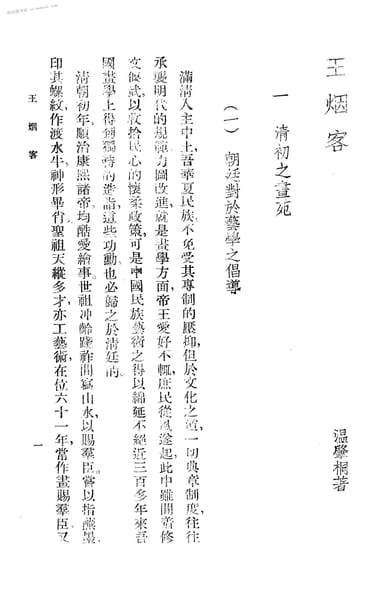 王烟客
温肇桐著
一　清初之畫苑
(一)　朝廷對於藝學之倡導
滿清入主中土,吾華夏民族不免受其專制的壓抑,但於文化之道,一切典章制度,往往
承襲明代的規範,力圖改進,就是畫學方面,帝王愛好不輒,庶民從風遂起,此中雖間有修
文偃武,以收拾民心的懷柔政策,可是中國民族藝術之得以綿延不絕,近三百多年來,吾
國畫學上得到獨特的造詣,這些功勳也必歸之於清廷的。
清朝初年,順治康熙諸帝,均酷愛繪事,世祖冲齡踐祚,間寫山水,以賜羣臣。嘗以指蘸墨,
印其螺紋,作渡水牛,神形畢肖,聖祖天縱多才,亦工藝術,在位六十一年,常作畫賜羣臣。又
王烟客
一